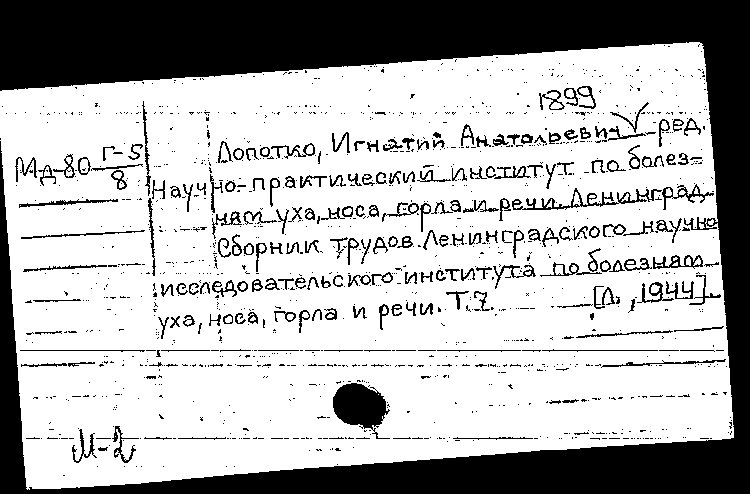 1899
Мд-80 Г-5/8
Лопотко, Игнатий Анатольевич ред.
Научно-практический институт по болез=
ням уха, носа, горла и речи. Ленинград.
Сборник трудов Ленинградского научно
исследовательского института по болезням
уха, носа, горла и речи. Т.7. [Л., 1944].
М-2